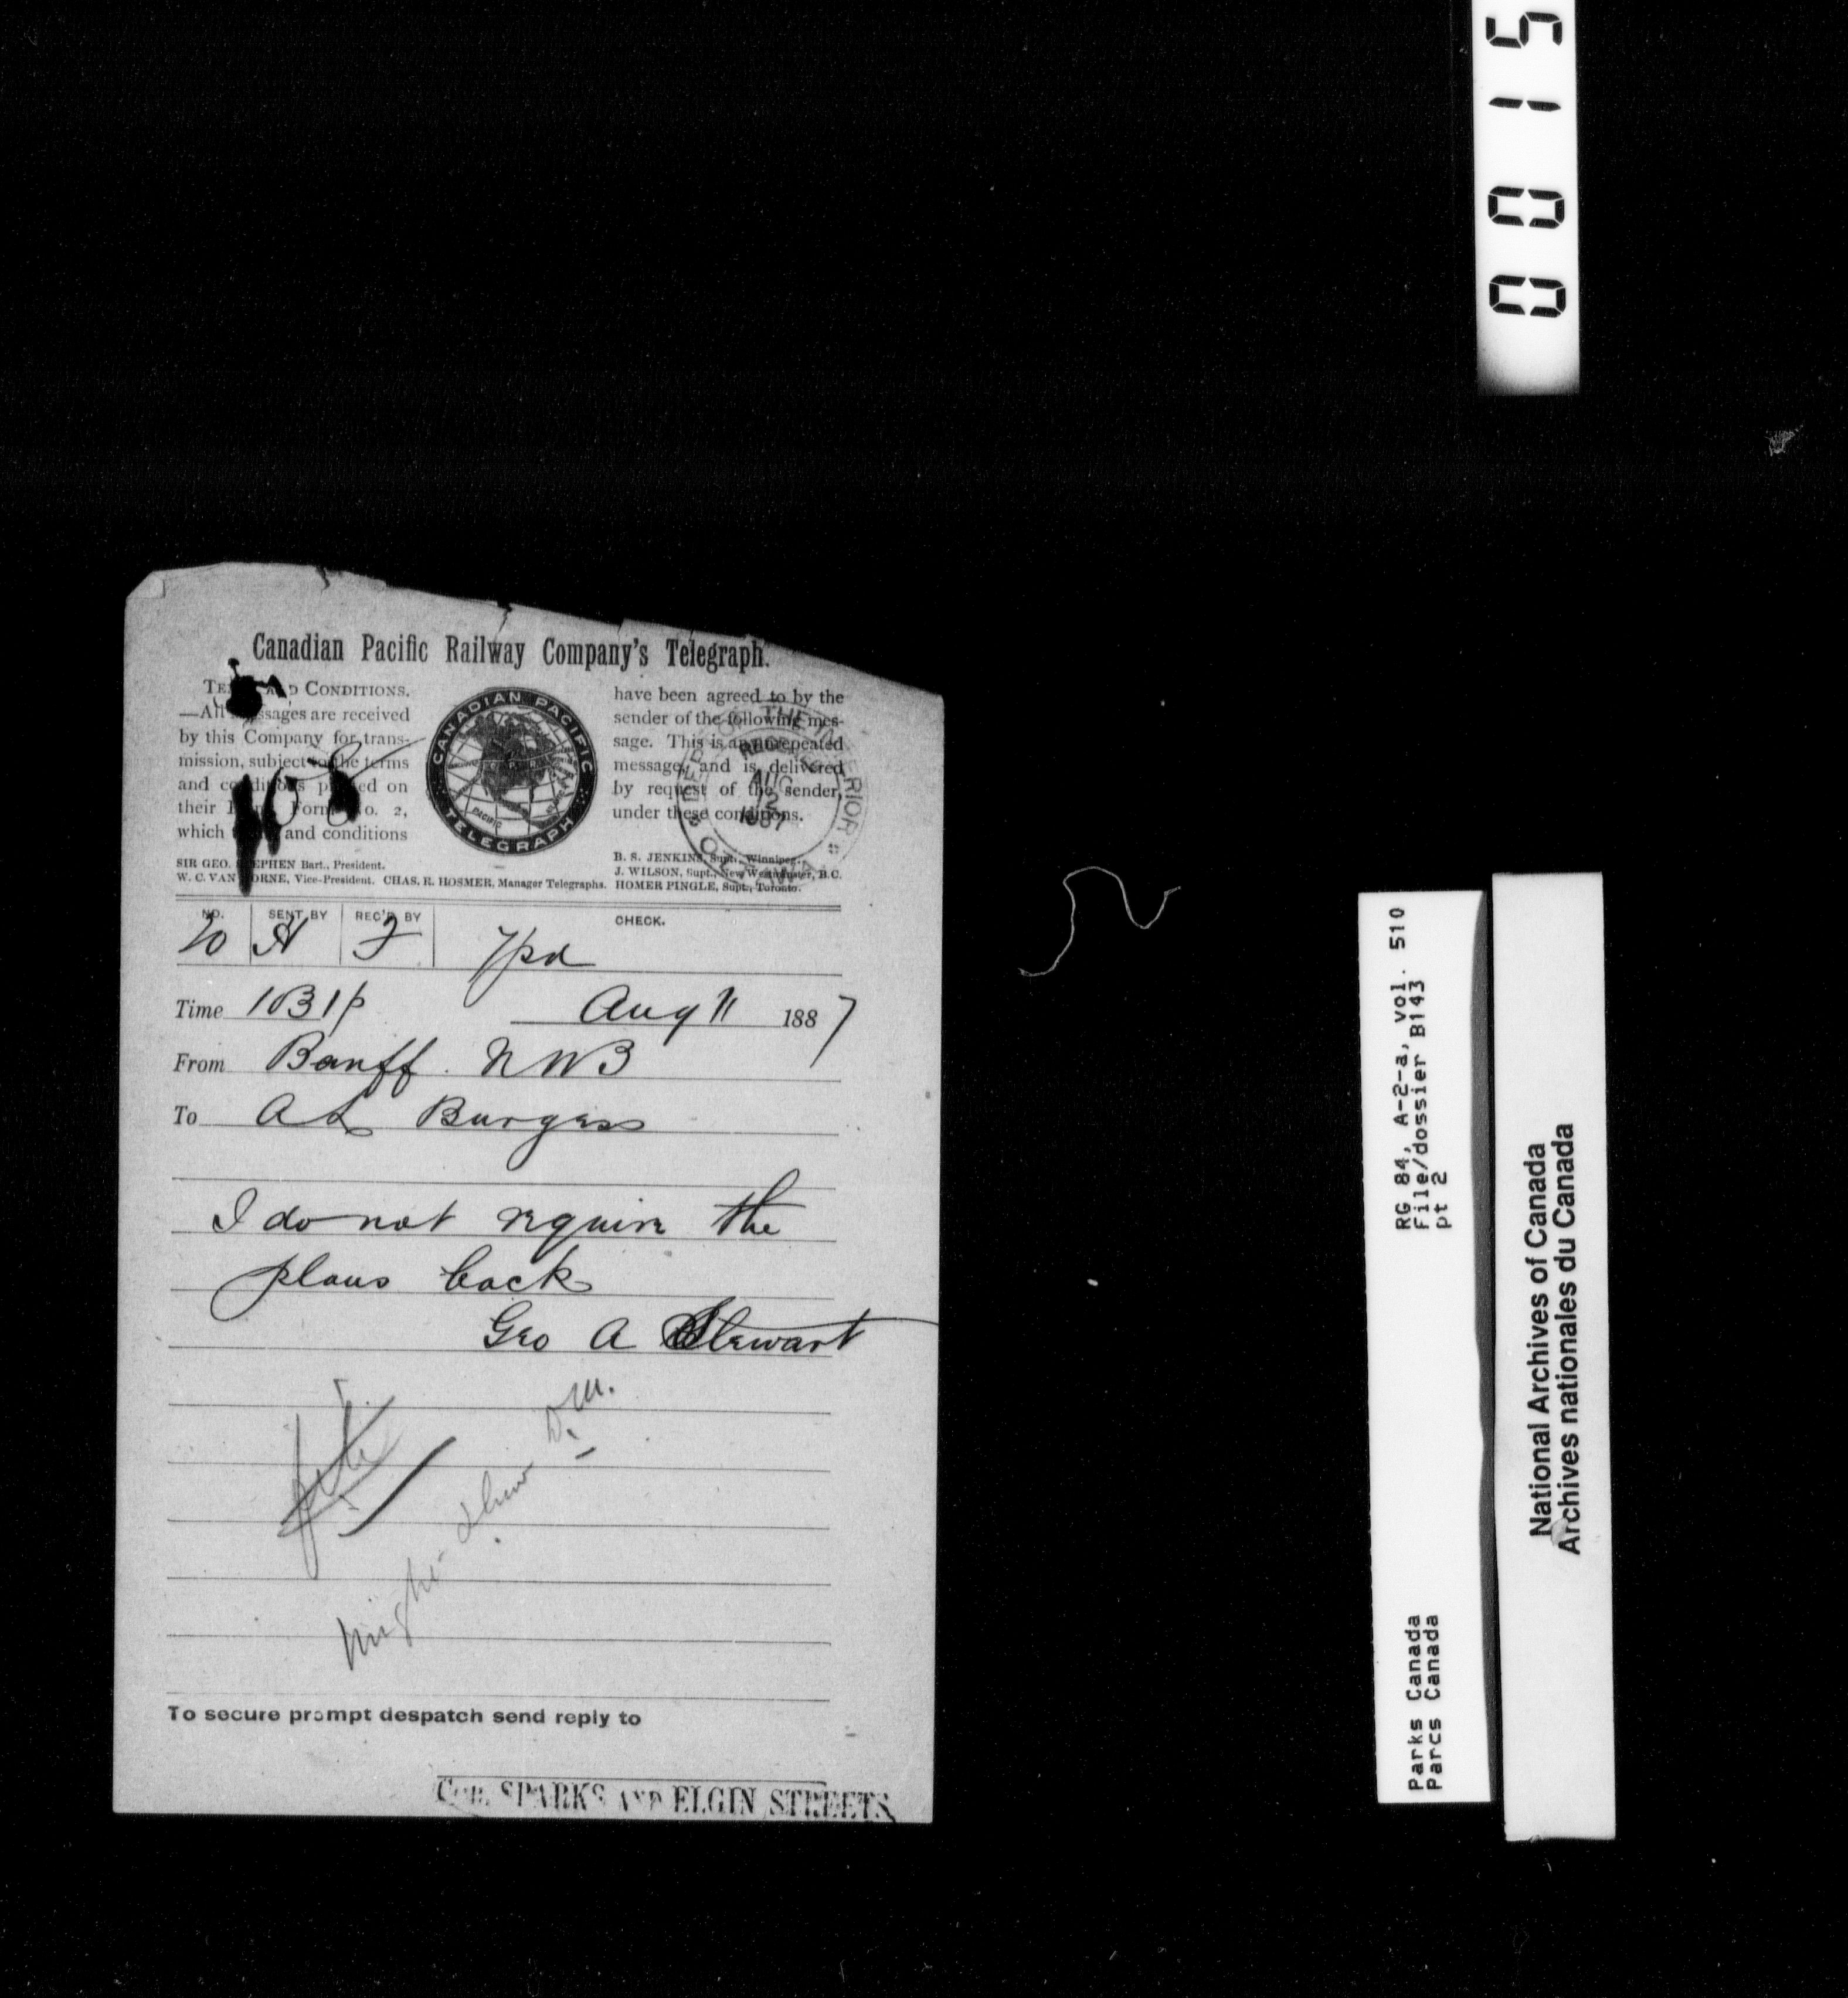 0015
Canadian Pacific Railway Company's Telegraph.
CONDITIONS.
—All messages are received
by this Company for trans-
mission, subject to the terms
and conditions printed on
their Form No. 2,
which and conditions
have been agreed to by the
sender of the following mes-
sage. This is an unrepeated
message, and is delivered
by request of the sender,
under these conditions.
CANADIAN PACIFIC
TELEGRAPH
THE INTERIOR
AUG
1887
OTTAWA
SIR GEO. STEPHEN Bart., President.
W. C. VAN HORNE, Vice-President. CHAS. R. HOSMER, Manager Telegraphs.
B. S. JENKINS, Supt., Winnipeg.
J. WILSON, Supt., New Westminster, B.C.
HOMER PINGLE, Supt., Toronto.
NO. SENT BY REC'D BY CHECK.
20 H 7pd
Time 1031p Aug 11 1887
From Banff. NWB
To A L Burgess
I do not require the
plans back
Geo A Stewart
file
D.M.
To secure prompt despatch send reply to
COR. SPARKS AND ELGIN STREETS
RG 84, A-2-a, vol. 510
File/dossier B143
pt 2
Parks Canada
Parcs Canada
National Archives of Canada
Archives nationales du Canada